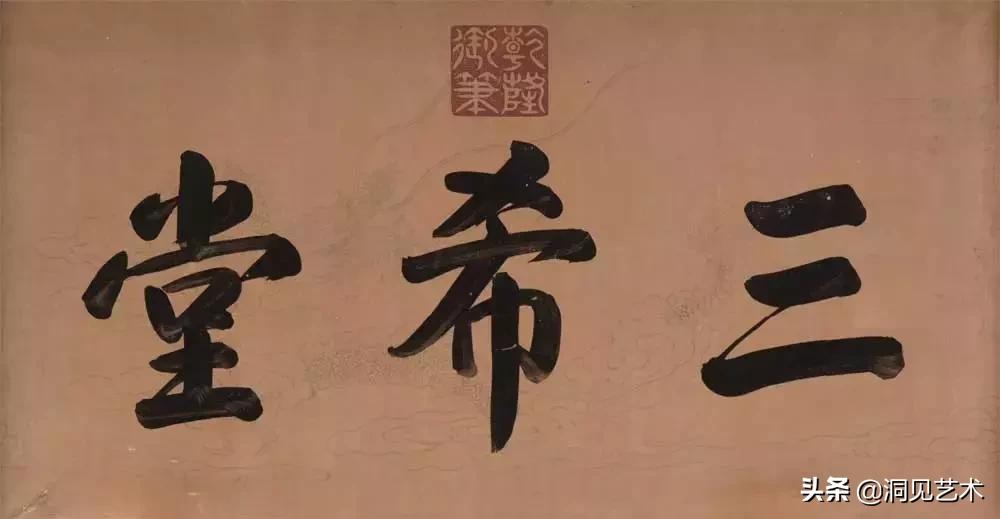 乾隆
御筆
三希堂
头条 @洞见艺术